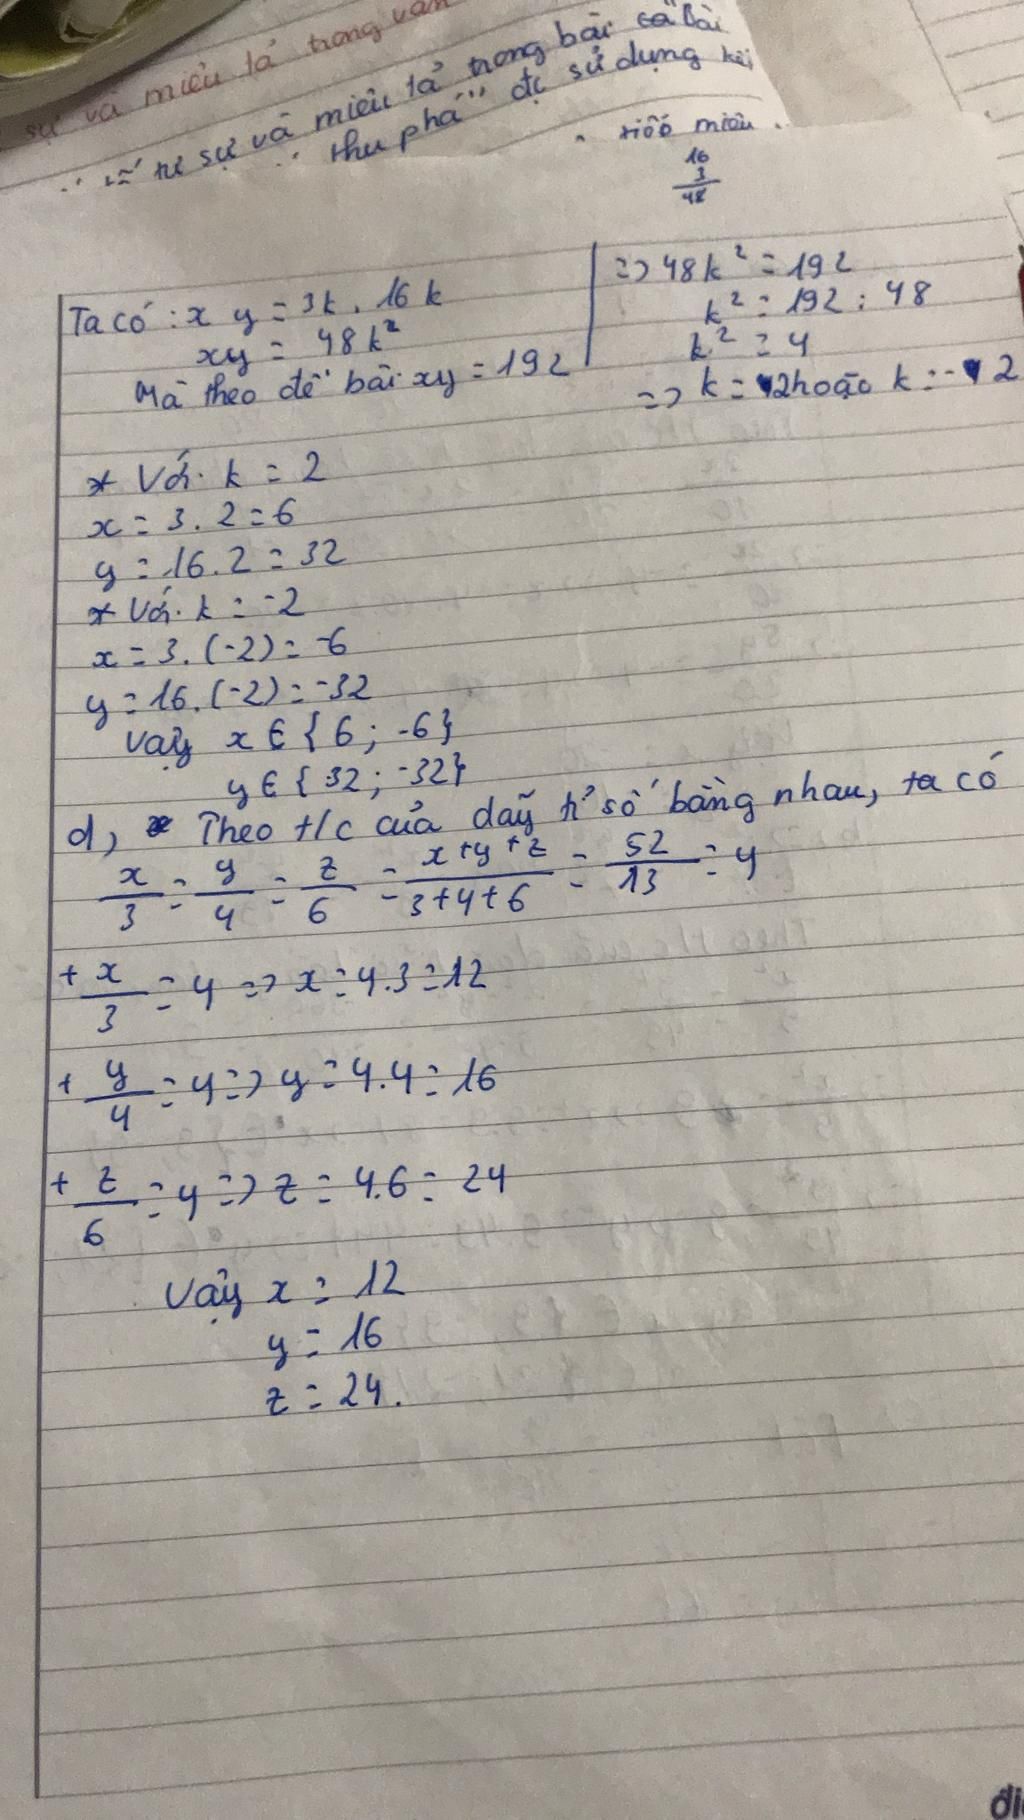 sự và miêu tả trong văn
tư sự và miêu tả trong bài cả bài
thu phá" đc sử dụng
miêu
16
3
48
Ta có : x y = 3k . 16 k
xy = 48k²
Mà theo đề bài xy = 192
=> 48k² = 192
k² = 192 : 48
k² = 4
=> k = 2 hoặc k = -2
* Với k = 2
x = 3 . 2 = 6
y = 16 . 2 = 32
* Với k = -2
x = 3 . (-2) = -6
y = 16 . (-2) = -32
Vậy x ∈ { 6 ; -6 }
y ∈ { 32 ; -32 }
d, Theo t/c của dãy tỉ số bằng nhau, ta có
x/3 = y/4 = z/6 = x+y+z/3+4+6 = 52/13 = 4
+ x/3 = 4 => x = 4.3 = 12
+ y/4 = 4 => y = 4.4 = 16
+ z/6 = 4 => z = 4.6 = 24
Vậy x = 12
y = 16
z = 24.